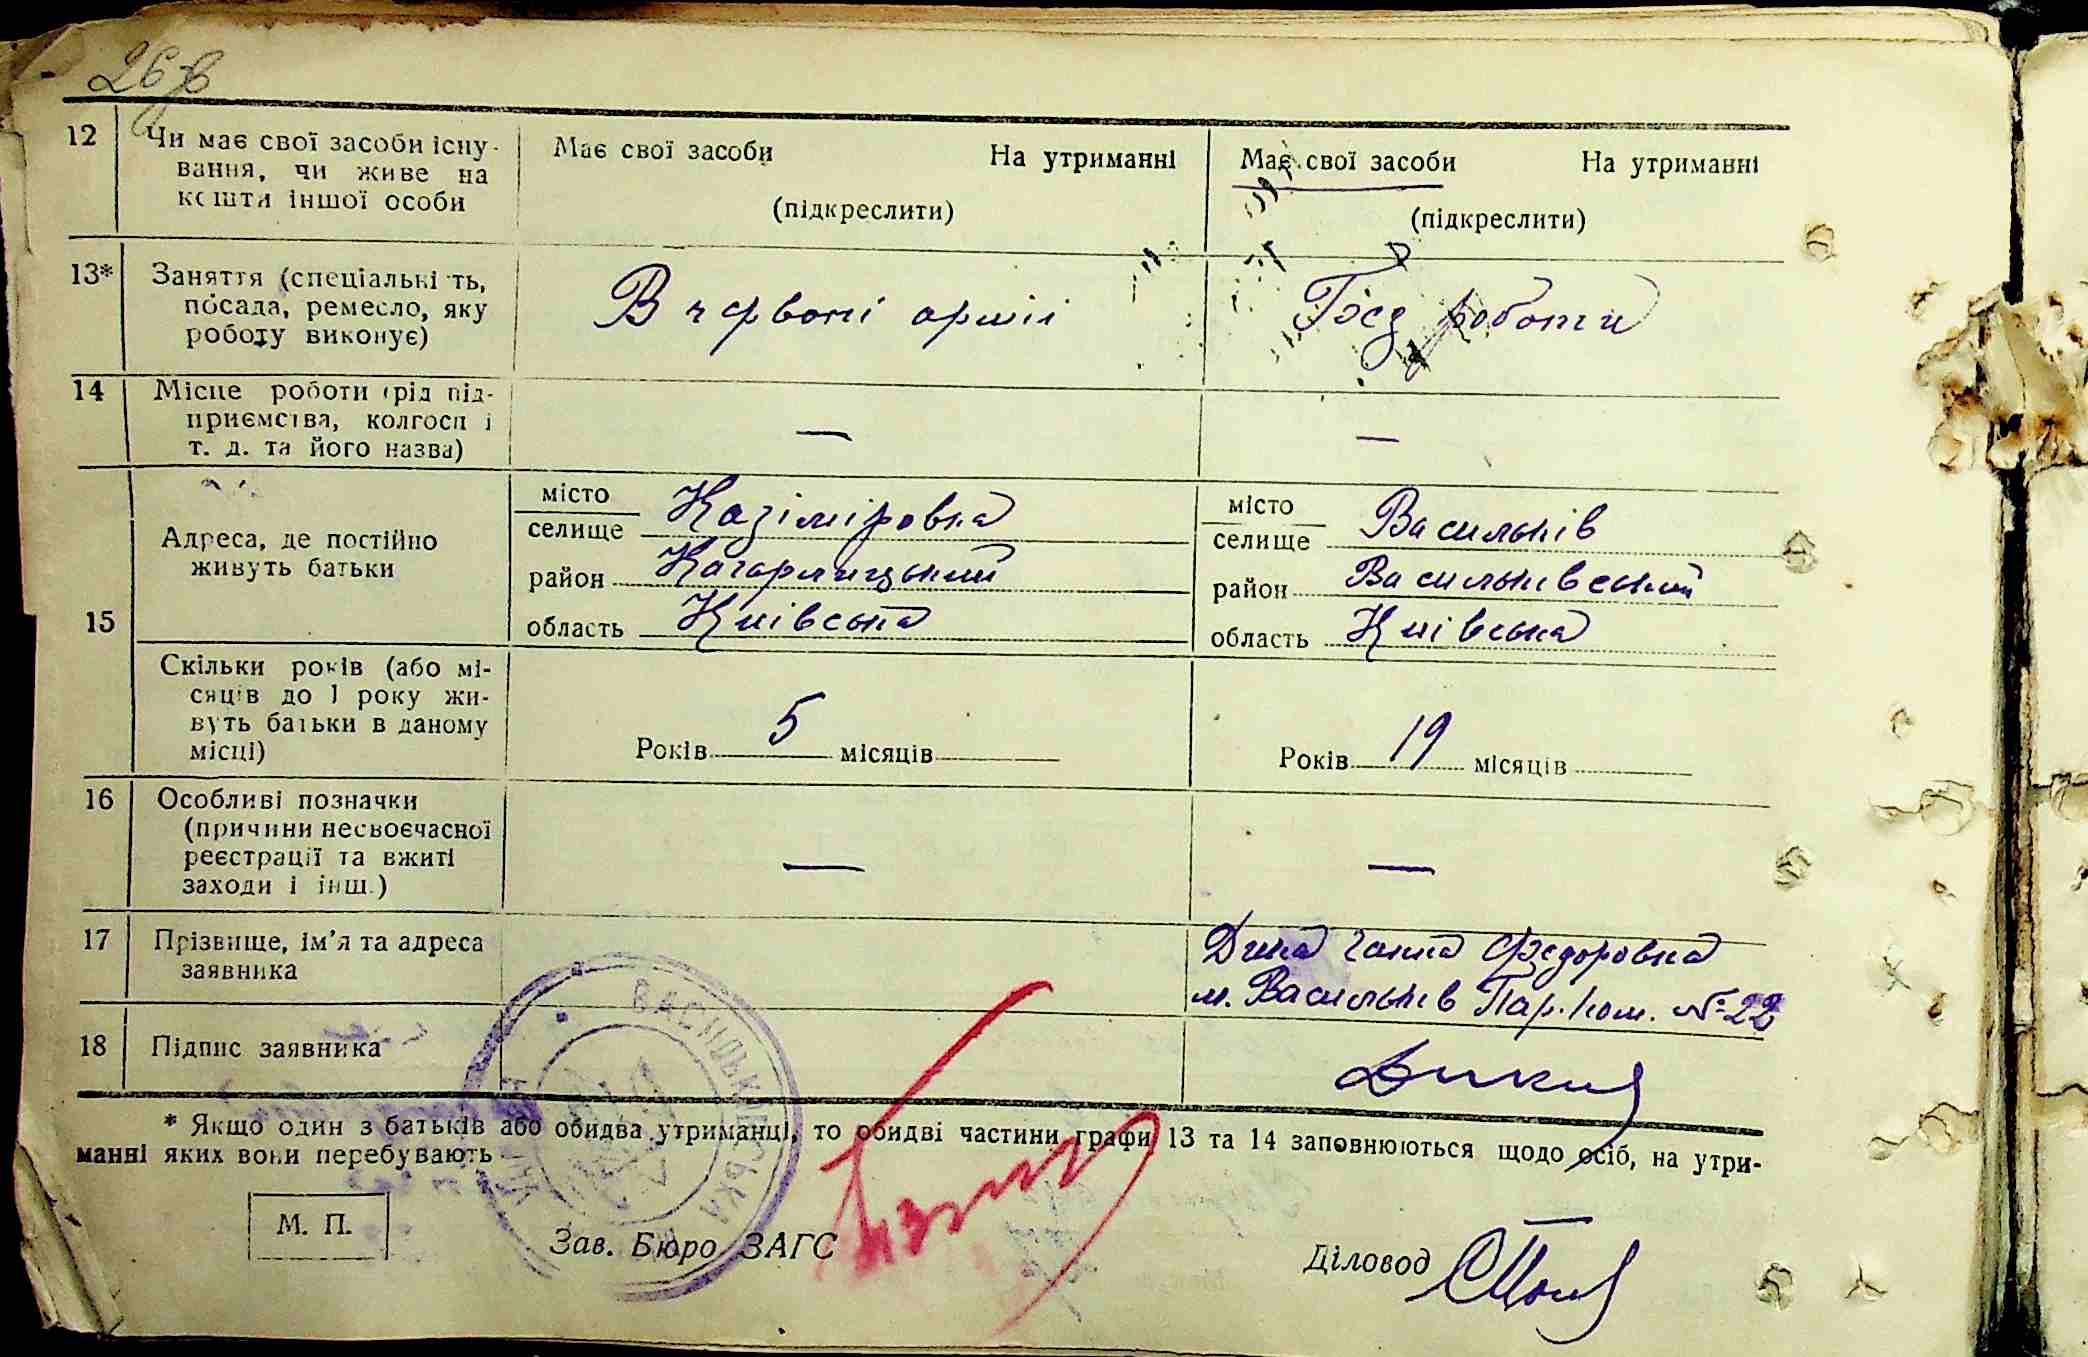 26 зв
12 Чи має свої засоби існу-
вання, чи живе на
кошти іншої особи
Має свої засоби На утриманні
(підкреслити)
Має свої засоби На утриманні
(підкреслити)
13* Заняття (спеціальність,
посада, ремесло, яку
роботу виконує)
В червоні армії
Госд роботи
14 Місце роботи (рід під-
приємства, колгосп і
т. д. та його назва)
—
—
15
Адреса, де постійно
живуть батьки
місто
селище Казіміровка
район Кагарлицький
область Київська
місто
селище Васильків
район Васильківський
область Київська
Скільки років (або мі-
сяців до 1 року жи-
вуть батьки в даному
місці)
Років 5 місяців
Років 19 місяців
16 Особливі позначки
(причини несвоєчасної
реєстрації та вжиті
заходи і інш.)
—
—
17 Прізвище, ім'я та адреса
заявника
Ганна Федоровна
м. Васильків Пар.ком. № 22
18 Підпис заявника
* Якщо один з батьків або обидва утриманці, то обидві частини графи 13 та 14 заповнюються щодо осіб, на утри-
манні яких вони перебувають
М. П.
Зав. Бюро ЗАГС
Діловод
ВАСИЛЬКІВСЬКА